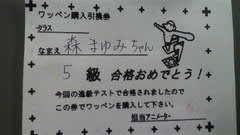 ワッペン購入引換券
クラス
なまえ 森 まゆみちゃん
5 級 合格おめでとう!
今回の進級テストで合格されましたので
この券でワッペンを購入して下さい。
担当アニメーター